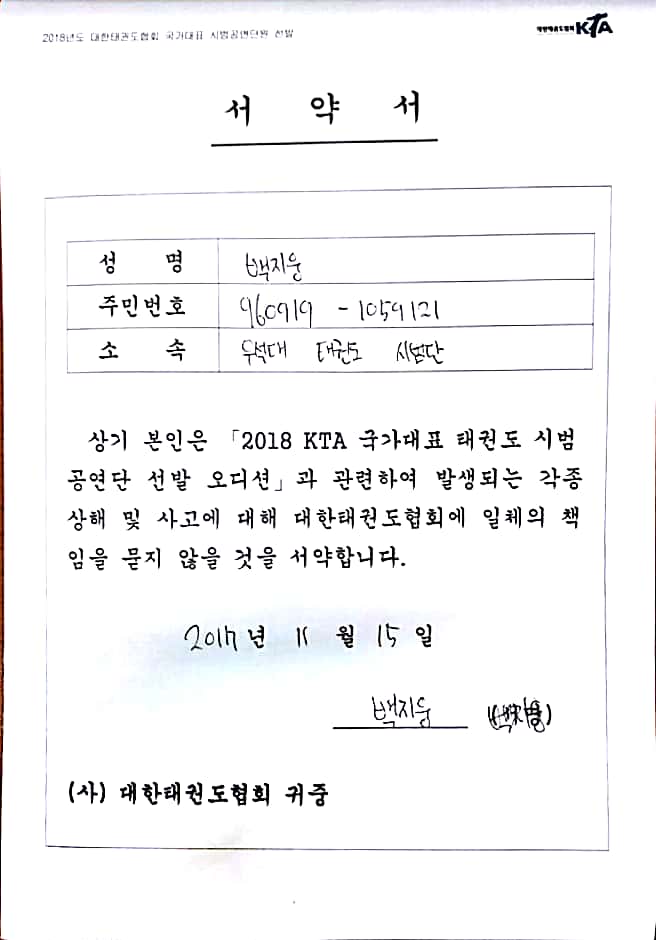 2018년도 대한태권도협회 국가대표 시범공연단원 선발
대한태권도협회 KTA
서 약 서
성 명 백지웅
주민번호 960919 - 1059121
소 속 우석대 태권도 시범단
상기 본인은 「2018 KTA 국가대표 태권도 시범
공연단 선발 오디션」과 관련하여 발생되는 각종
상해 및 사고에 대해 대한태권도협회에 일체의 책
임을 묻지 않을 것을 서약합니다.
2017년 11 월 15 일
백지웅
(사) 대한태권도협회 귀중